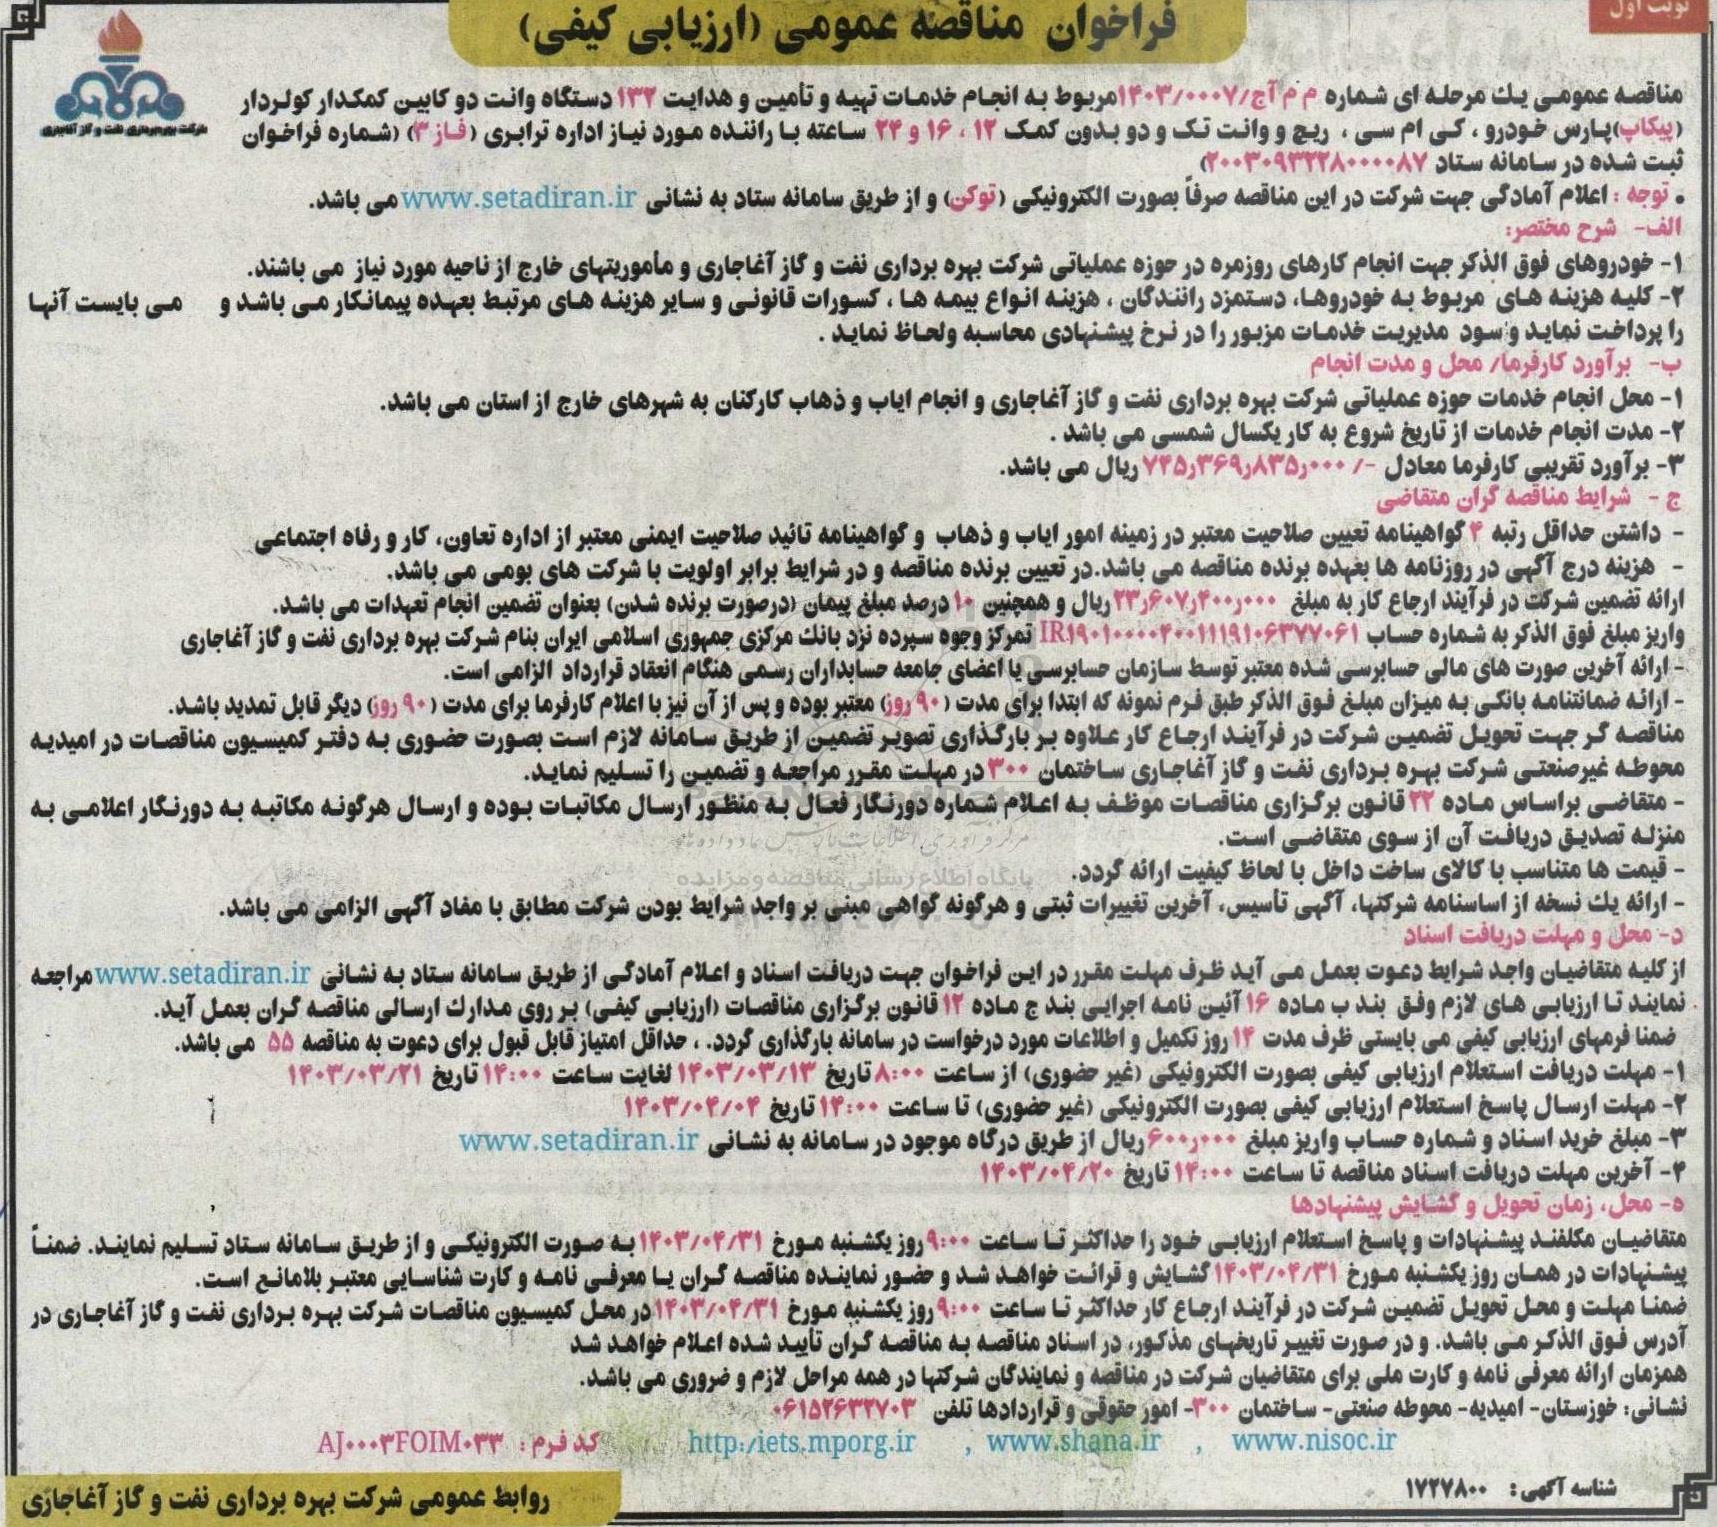 نوبت اول
فراخوان مناقصه عمومی (ارزیابی کیفی)
شرکت بهره برداری نفت و گاز آغاجاری
مناقصه عمومی یک مرحله ای شماره م م آج/۱۴۰۳/۰۰۰۷ مربوط به انجام خدمات تهیه و تأمین و هدایت ۱۳۲ دستگاه وانت دو کابین کمکدار کولردار
(پیکاپ) پارس خودرو ، کی ام سی ، ریچ و وانت تک و دو بدون کمک ۱۲ ، ۱۶ و ۲۴ ساعته با راننده مورد نیاز اداره ترابری (فاز ۳) (شماره فراخوان
ثبت شده در سامانه ستاد ۲۰۰۳۰۹۳۲۲۸۰۰۰۰۸۷)
• توجه : اعلام آمادگی جهت شرکت در این مناقصه صرفاً بصورت الکترونیکی (توکن) و از طریق سامانه ستاد به نشانی www.setadiran.ir می باشد.
الف- شرح مختصر:
۱- خودروهای فوق الذکر جهت انجام کارهای روزمره در حوزه عملیاتی شرکت بهره برداری نفت و گاز آغاجاری و مأموریتهای خارج از ناحیه مورد نیاز می باشند.
۲- کلیه هزینه های مربوط به خودروها، دستمزد رانندگان ، هزینه انواع بیمه ها ، کسورات قانونی و سایر هزینه های مرتبط بعهده پیمانکار می باشد و می بایست آنها
را پرداخت نماید و سود مدیریت خدمات مزبور را در نرخ پیشنهادی محاسبه ولحاظ نماید .
ب- برآورد کارفرما/ محل و مدت انجام
۱- محل انجام خدمات حوزه عملیاتی شرکت بهره برداری نفت و گاز آغاجاری و انجام ایاب و ذهاب کارکنان به شهرهای خارج از استان می باشد.
۲- مدت انجام خدمات از تاریخ شروع به کار یکسال شمسی می باشد .
۳- برآورد تقریبی کارفرما معادل -/۷۴۵٫۳۶۹٫۸۳۵٫۰۰۰ ریال می باشد.
ج - شرایط مناقصه گران متقاضی
- داشتن حداقل رتبه ۴ گواهینامه تعیین صلاحیت معتبر در زمینه امور ایاب و ذهاب و گواهینامه تائید صلاحیت ایمنی معتبر از اداره تعاون، کار و رفاه اجتماعی
- هزینه درج آگهی در روزنامه ها بعهده برنده مناقصه می باشد.در تعیین برنده مناقصه و در شرایط برابر اولویت با شرکت های بومی می باشد.
ارائه تضمین شرکت در فرآیند ارجاع کار به مبلغ ۲۳٫۶۰۷٫۴۰۰٫۰۰۰ ریال و همچنین ۱۰ درصد مبلغ پیمان (درصورت برنده شدن) بعنوان تضمین انجام تعهدات می باشد.
واریز مبلغ فوق الذکر به شماره حساب IR۱۹۰۱۰۰۰۰۴۰۰۱۱۱۹۱۰۶۳۷۷۰۶۱ تمرکز وجوه سپرده نزد بانک مرکزی جمهوری اسلامی ایران بنام شرکت بهره برداری نفت و گاز آغاجاری
- ارائه آخرین صورت های مالی حسابرسی شده معتبر توسط سازمان حسابرسی یا اعضای جامعه حسابداران رسمی هنگام انعقاد قرارداد الزامی است.
- ارائه ضمانتنامه بانکی به میزان مبلغ فوق الذکر طبق فرم نمونه که ابتدا برای مدت (۹۰ روز) معتبر بوده و پس از آن نیز با اعلام کارفرما برای مدت (۹۰ روز) دیگر قابل تمدید باشد.
مناقصه گر جهت تحویل تضمین شرکت در فرآیند ارجاع کار علاوه بر بارگذاری تصویر تضمین از طریق سامانه لازم است بصورت حضوری به دفتر کمیسیون مناقصات در امیدیه
محوطه غیرصنعتی شرکت بهره برداری نفت و گاز آغاجاری ساختمان ۳۰۰ در مهلت مقرر مراجعه و تضمین را تسلیم نماید.
- متقاضی براساس ماده ۲۲ قانون برگزاری مناقصات موظف به اعلام شماره دورنگار فعال به منظور ارسال مکاتبات بوده و ارسال هرگونه مکاتبه به دورنگار اعلامی به
منزله تصدیق دریافت آن از سوی متقاضی است.
پایگاه اطلاع رسانی مناقصه و مزایده
- قیمت ها متناسب با کالای ساخت داخل با لحاظ کیفیت ارائه گردد.
- ارائه یک نسخه از اساسنامه شرکتها، آگهی تأسیس، آخرین تغییرات ثبتی و هرگونه گواهی مبنی بر واجد شرایط بودن شرکت مطابق با مفاد آگهی الزامی می باشد.
د- محل و مهلت دریافت اسناد
از کلیه متقاضیان واجد شرایط دعوت بعمل می آید ظرف مهلت مقرر در این فراخوان جهت دریافت اسناد و اعلام آمادگی از طریق سامانه ستاد به نشانی www.setadiran.ir مراجعه
نمایند تا ارزیابی های لازم وفق بند ب ماده ۱۶ آئین نامه اجرایی بند ج ماده ۱۲ قانون برگزاری مناقصات (ارزیابی کیفی) بر روی مدارک ارسالی مناقصه گران بعمل آید.
ضمنا فرمهای ارزیابی کیفی می بایستی ظرف مدت ۱۴ روز تکمیل و اطلاعات مورد درخواست در سامانه بارگذاری گردد. ، حداقل امتیاز قابل قبول برای دعوت به مناقصه ۵۵ می باشد.
۱- مهلت دریافت استعلام ارزیابی کیفی بصورت الکترونیکی (غیر حضوری) از ساعت ۸:۰۰ تاریخ ۱۴۰۳/۰۳/۱۳ لغایت ساعت ۱۴:۰۰ تاریخ ۱۴۰۳/۰۳/۲۱
۲- مهلت ارسال پاسخ استعلام ارزیابی کیفی بصورت الکترونیکی (غیر حضوری) تا ساعت ۱۴:۰۰ تاریخ ۱۴۰۳/۰۴/۰۴
۳- مبلغ خرید اسناد و شماره حساب واریز مبلغ ۶۰۰٫۰۰۰ ریال از طریق درگاه موجود در سامانه به نشانی www.setadiran.ir
۴- آخرین مهلت دریافت اسناد مناقصه تا ساعت ۱۴:۰۰ تاریخ ۱۴۰۳/۰۴/۲۰
ه- محل، زمان تحویل و گشایش پیشنهادها
متقاضیان مکلفند پیشنهادات و پاسخ استعلام ارزیابی خود را حداکثر تا ساعت ۹:۰۰ روز یکشنبه مورخ ۱۴۰۳/۰۴/۳۱ به صورت الکترونیکی و از طریق سامانه ستاد تسلیم نمایند. ضمناً
پیشنهادات در همان روز یکشنبه مورخ ۱۴۰۳/۰۴/۳۱ گشایش و قرائت خواهد شد و حضور نماینده مناقصه گران با معرفی نامه و کارت شناسایی معتبر بلامانع است.
ضمنا مهلت و محل تحویل تضمین شرکت در فرآیند ارجاع کار حداکثر تا ساعت ۹:۰۰ روز یکشنبه مورخ ۱۴۰۳/۰۴/۳۱ در محل کمیسیون مناقصات شرکت بهره برداری نفت و گاز آغاجاری در
آدرس فوق الذکر می باشد. و در صورت تغییر تاریخهای مذکور، در اسناد مناقصه به مناقصه گران تأیید شده اعلام خواهد شد
همزمان ارائه معرفی نامه و کارت ملی برای متقاضیان شرکت در مناقصه و نمایندگان شرکتها در همه مراحل لازم و ضروری می باشد.
نشانی: خوزستان- امیدیه- محوطه صنعتی- ساختمان ۳۰۰- امور حقوقی و قراردادها تلفن ۰۶۱۵۲۶۳۲۷۰۳
www.nisoc.ir , www.shana.ir , http:/iets.mporg.ir کد فرم : AJ۰۰۰۳FOIM۰۳۳
شناسه آگهی: ۱۷۲۷۸۰۰
روابط عمومی شرکت بهره برداری نفت و گاز آغاجاری